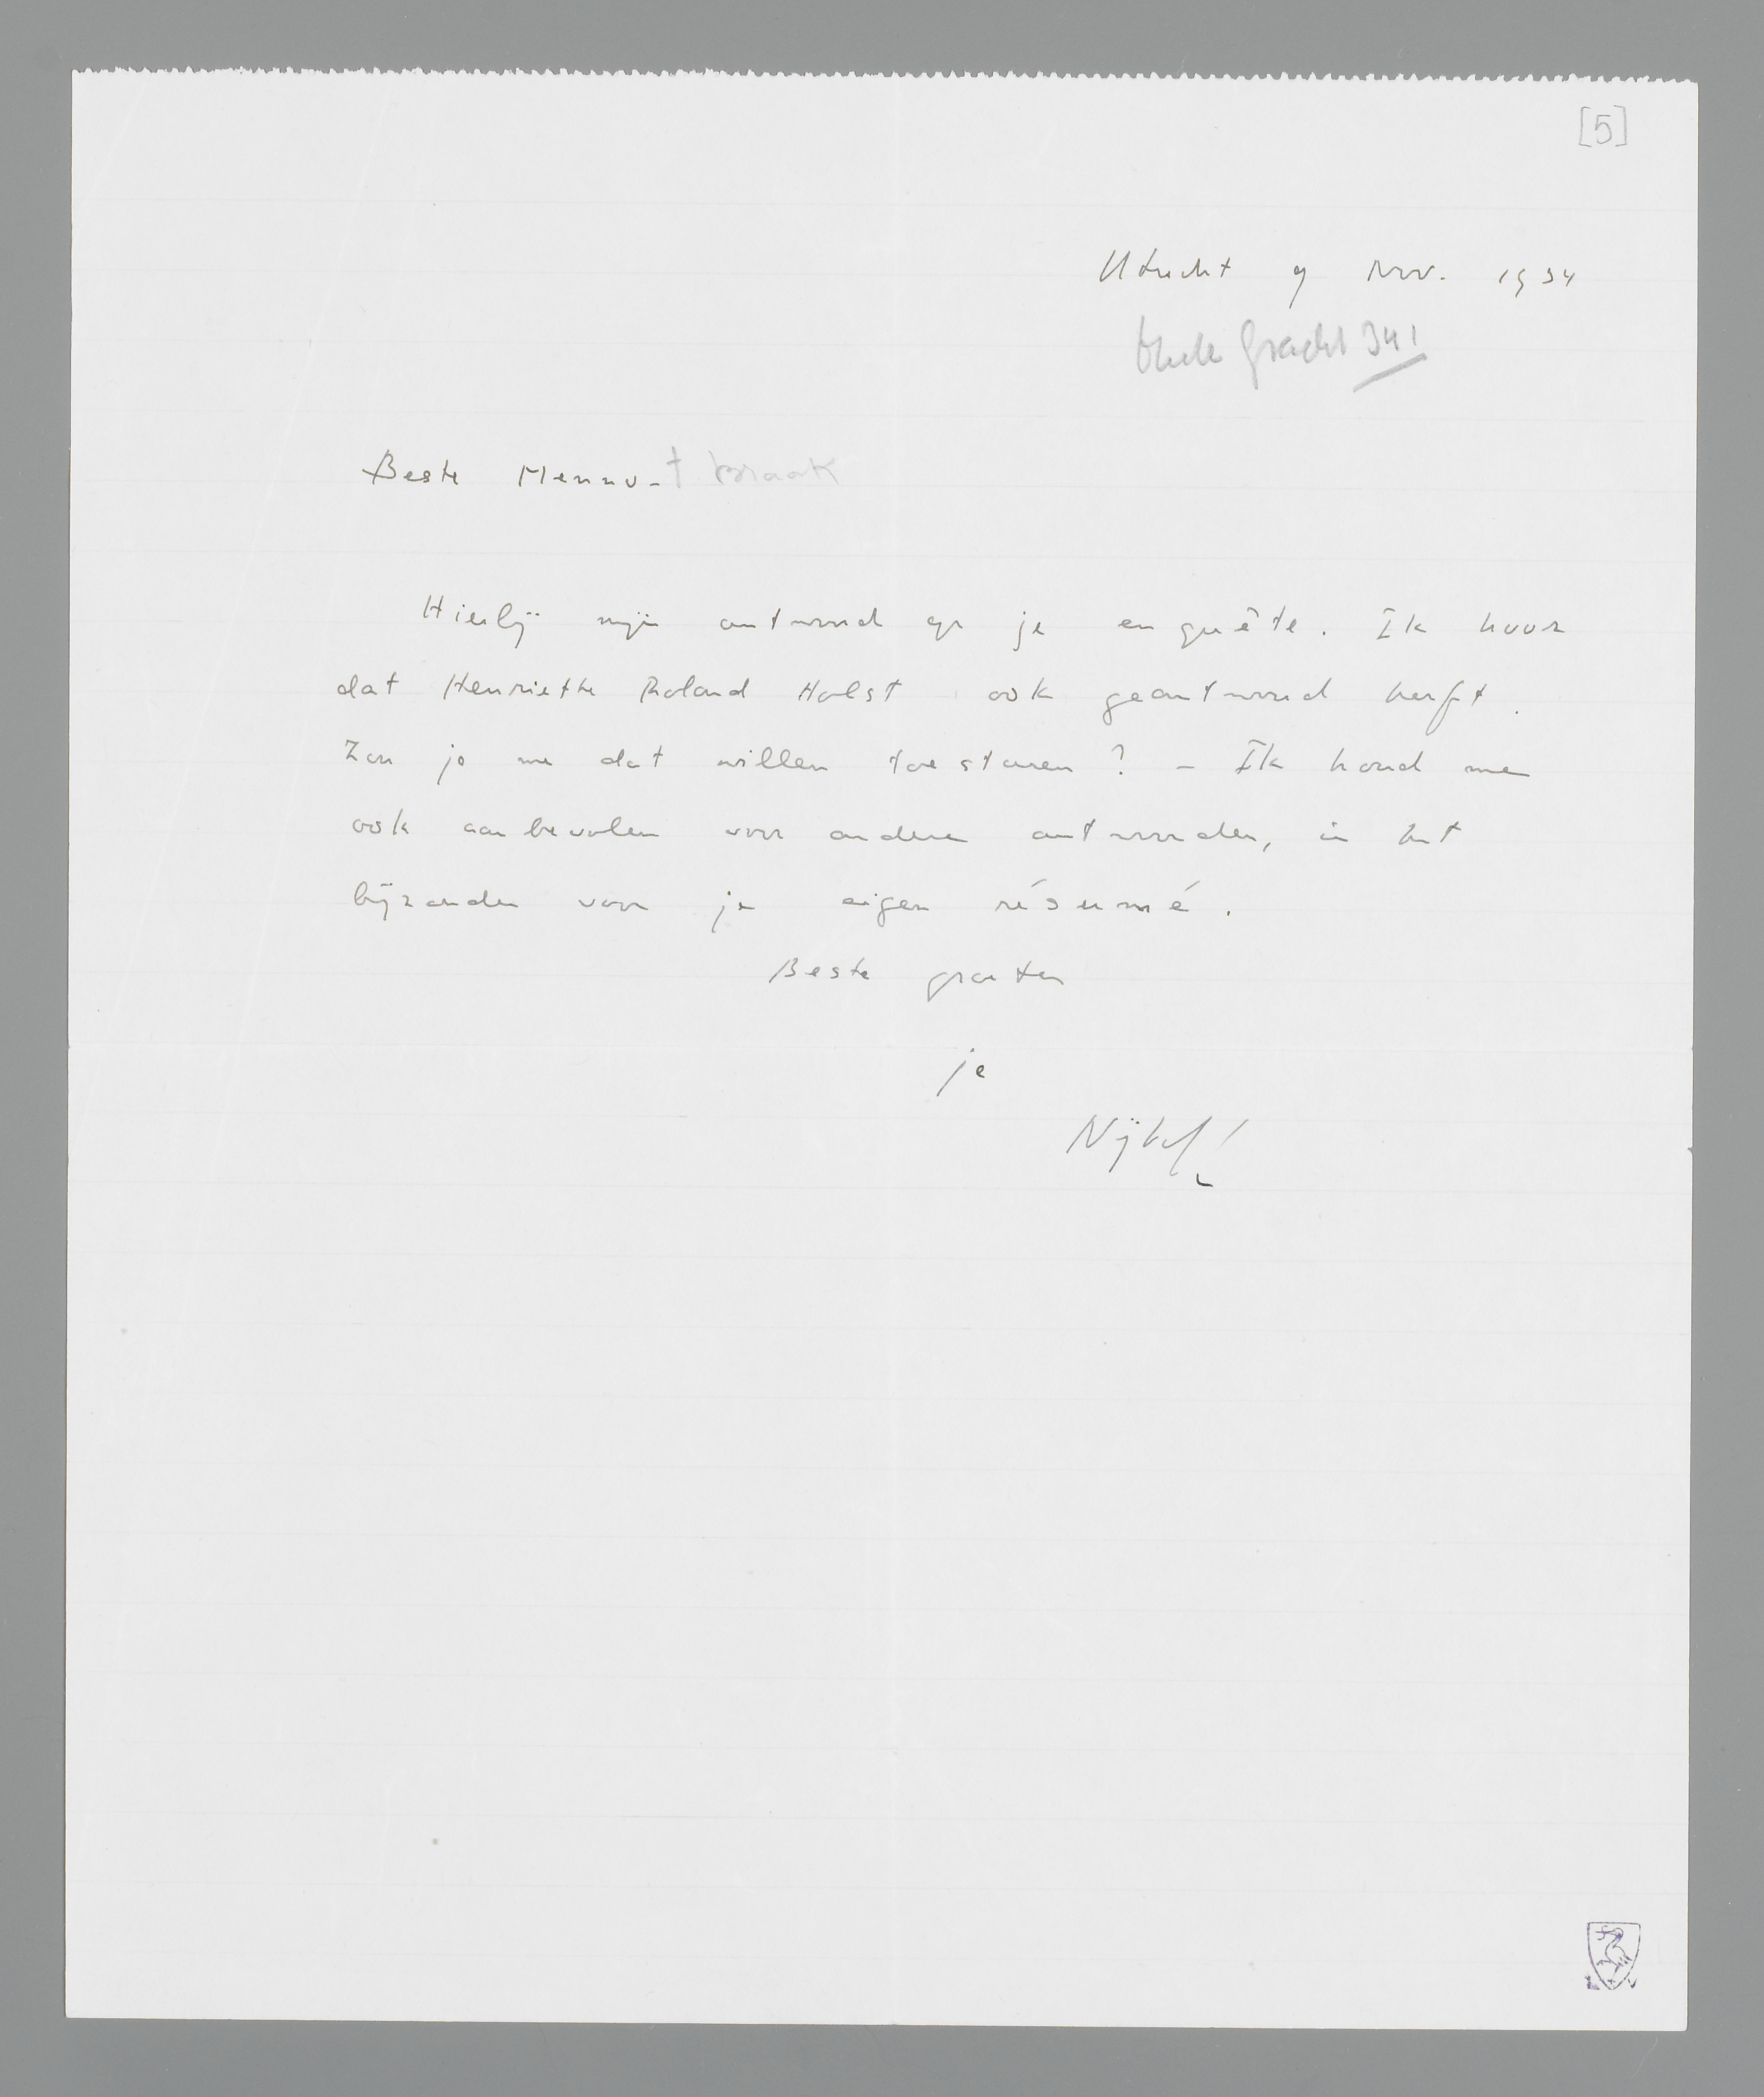 [5]
Utrecht 9 Nov. 1934
Oude Gracht 341
Beste Menno - t braak
Hierbij mijn antwoord op je enquête. Ik hoor
dat Henriette Roland Holst ook geantwoord heeft.
Zou je me dat willen toesturen? - Ik houd me
ook aanbevolen voor andere antwoorden, in het
bijzonder voor je eigen résumé.
Beste groeten
je
Nijhoff